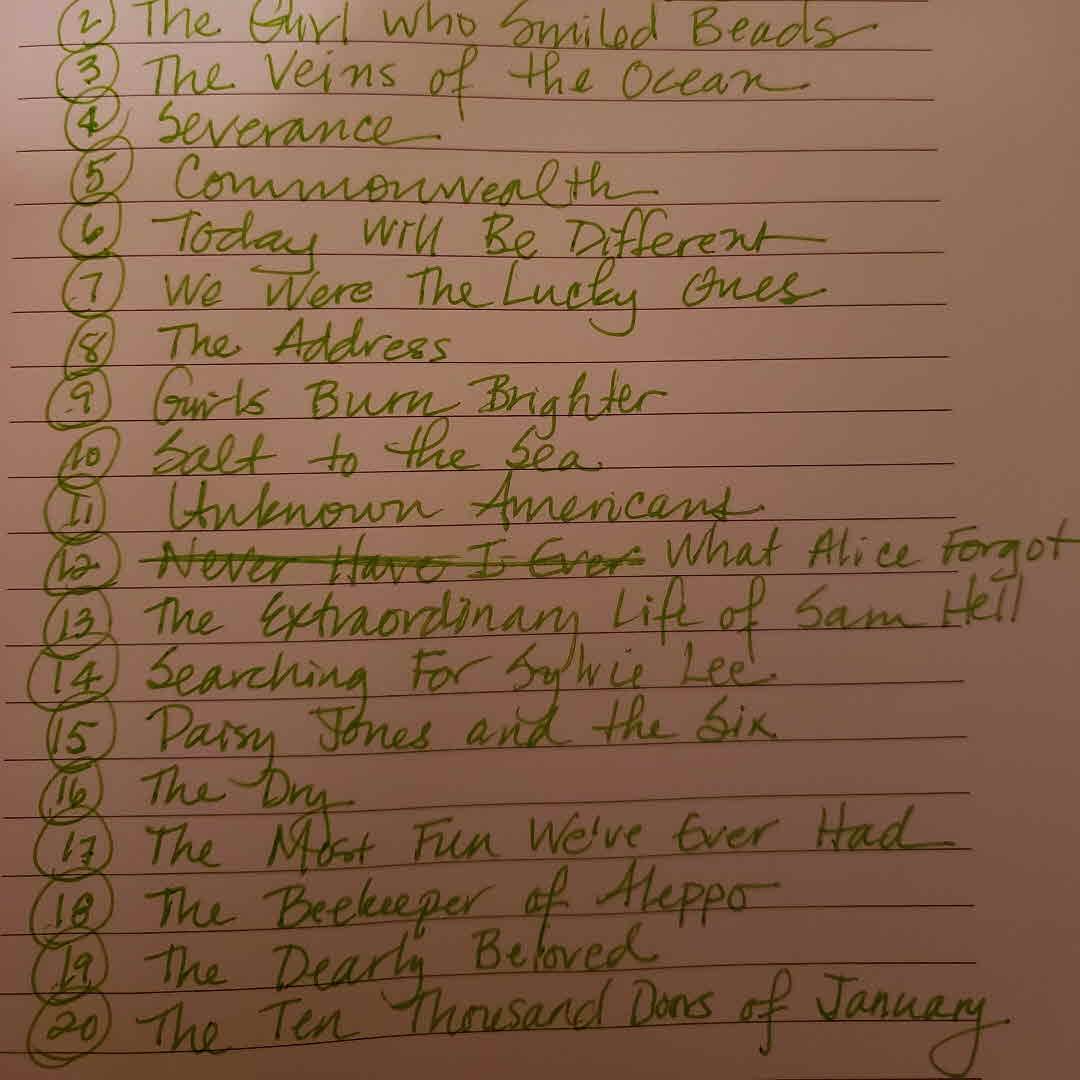 2 The Girl who Smiled Beads
3 The Veins of the Ocean
4 Severance
5 Commonwealth
6 Today Will Be Different
7 We Were The Lucky Ones
8 The Address
9 Girls Burn Brighter
10 Salt to the Sea
11 Unknown Americans
12 Never Have I Ever What Alice Forgot
13 The Extraordinary Life of Sam Hell
14 Searching For Sylvie Lee
15 Daisy Jones and the Six
16 The Dry
17 The Most Fun We've Ever Had
18 The Beekeeper of Aleppo
19 The Dearly Beloved
20 The Ten Thousand Doors of January